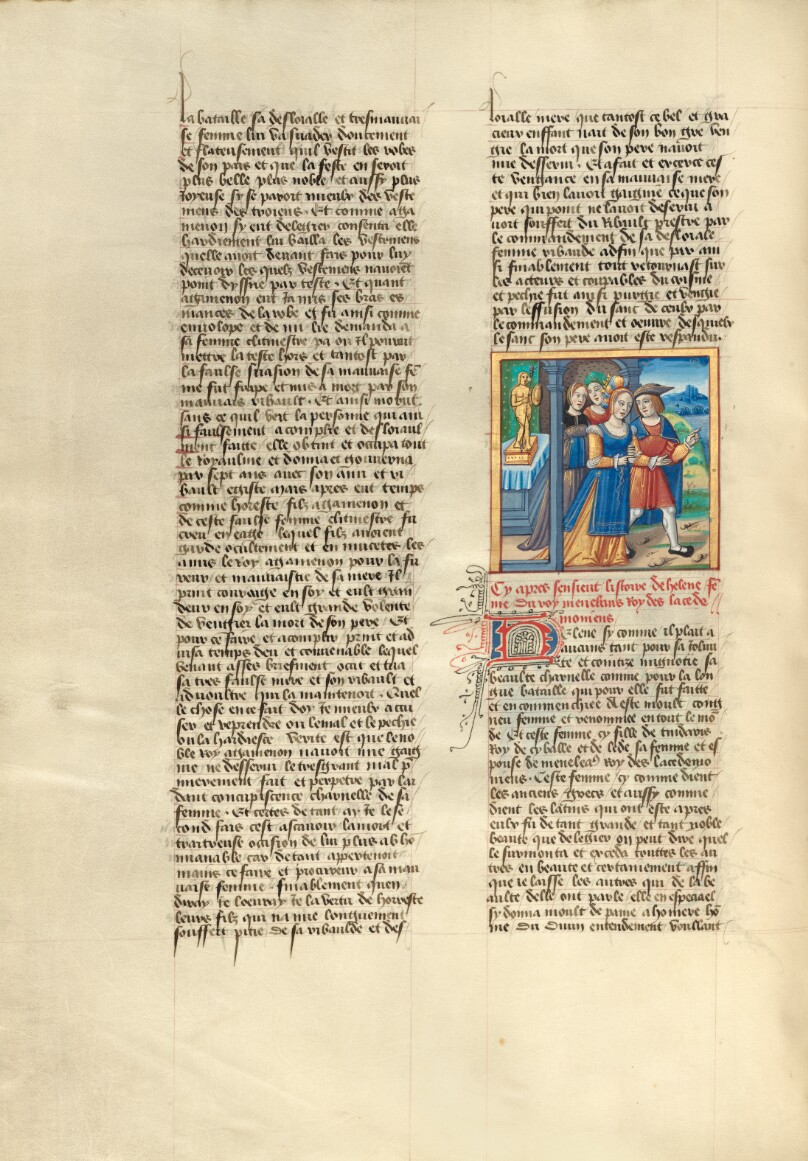 la bataille sa desloialle et tresmauuai
se femme luy va suader doulcement
et flateusement quil vestit les robes
de son pais et que la feste en seroit
plus belle plus noble et aussy plus
Joyeuse sy se paroit mieulx des veste
mens des troiens. Et comme aga
menon sy eut de legier consenti elle
hardiement lui bailla les vestemens
quelle auoit deuant fais pour luy
deceuoir lesquelz vestemens nauoient
point dyssue par teste. Et quant
agamenon eut Ja mis ses bras es
mances de la robe et fu ainsi comme
enuolope et de mi lie demanda a
sa femme clitmestre pa ou Jl pouuoit
mettre la teste hors et tantost par
la faulse suasion de sa mauuaise fe
me fut frape et mis a mort par son
mauuais ribault. Et ainsi morut
sans ce quil veit la personne qui ain
si faulsement acomplie et desloiaul
ment faitte elle obtint et occupa tout
le Royaulme et donna et gouuerna
par sept ans auec son ami et ri
bault egiste mais apres eut temps
comme horeste filz agamenon et
de ceste faulse femme clitmestre fu
creu en eage lequel filz auoient
garde ocultement et en mucettes les
amis le roy agamenon pour la fu
reur et mauuaistie de sa mere Jl
print couraige en soy et eult gran
deur en soy et eult grande volente
de vengier la mort de son pere. Et
pour ce faire et acomplir print et ad
uisa temps deu et conuenable lequel
venant asses briefment ocist et tua
sa tres faulse mere et son ribault et
aduoultre qui la maintenoit. Quel
le chose en ce fait doy Je mieulx accu
ser et reprendre ou le mal et le pechie
ou la hardiesce Verite est que le no
ble roy agamenon nauoit mie gaig
nie ne desserui le tresgrant mal p
mierement fait et perpetre par lar
dant concupiscence charnelle de sa
femme. Et certes de tant ay Je le se
cond fais cest ascauoir la mort et
traitreuse occision de lui plus abho
minable car de tant appertenoit
mains ce faire et procurer a sa mau
uaise femme. finablement quen
diray Je loeuray Je la vertu de horreste
leurs filz qui na mie longuement
souffert pitie de sa ribaulde et des
loialle mere que tantost ce bel et gra
cieux enffant nait de son bon gre ven
gie la mort que son pere nauoit
mie desserui. Et a fait et excerce ces
te vengance en sa mauuaise mere
et qui bien lauoit gaignie ce que son
pere qui point ne lauoit deserui a
uoit souffert du Ribault prestre par
le commandement de sa desloiale
femme ribaude adfin que par ain
si finablement tout retournast sur
les acteurs et coupables du crisme
et pechie fut ainsi purgie et vengie
par leffusion du sanc de ceulx par
le commandement et oeuure desquelx
le sanc son pere auoit este respandu.
Cy apres sensieut listoire de helene fe
me du roy menelaus roy des lacede
momens
Elene sy comme il plait a
aucuns tant pour sa
te et comme mignotie sa
beaulte charnelle comme pour la lon
gue bataille qui pour elle fut faitte
et en commenchiee a este moult cong
neu femme et renommee en tout le mo
de Et ceste femme cy fille de tindarus
Roy de cyballe et de lede sa femme et es
pouse de menelas Roy des lacedemo
niens. Ceste femme cy comme dient
les anciens grecs et aussy comme
dient les latins qui ont este apres
eulx fu de tant grande et tant noble
beaute que de legier on peut dire quel
le surmonta et exceda touttes les au
tres en beaute et certainement affin
que ie laisse les autres qui de la be
aulte delle ont parle elle en especial
sy donna moult de paine a homere ho
me du diuin entendement voullant